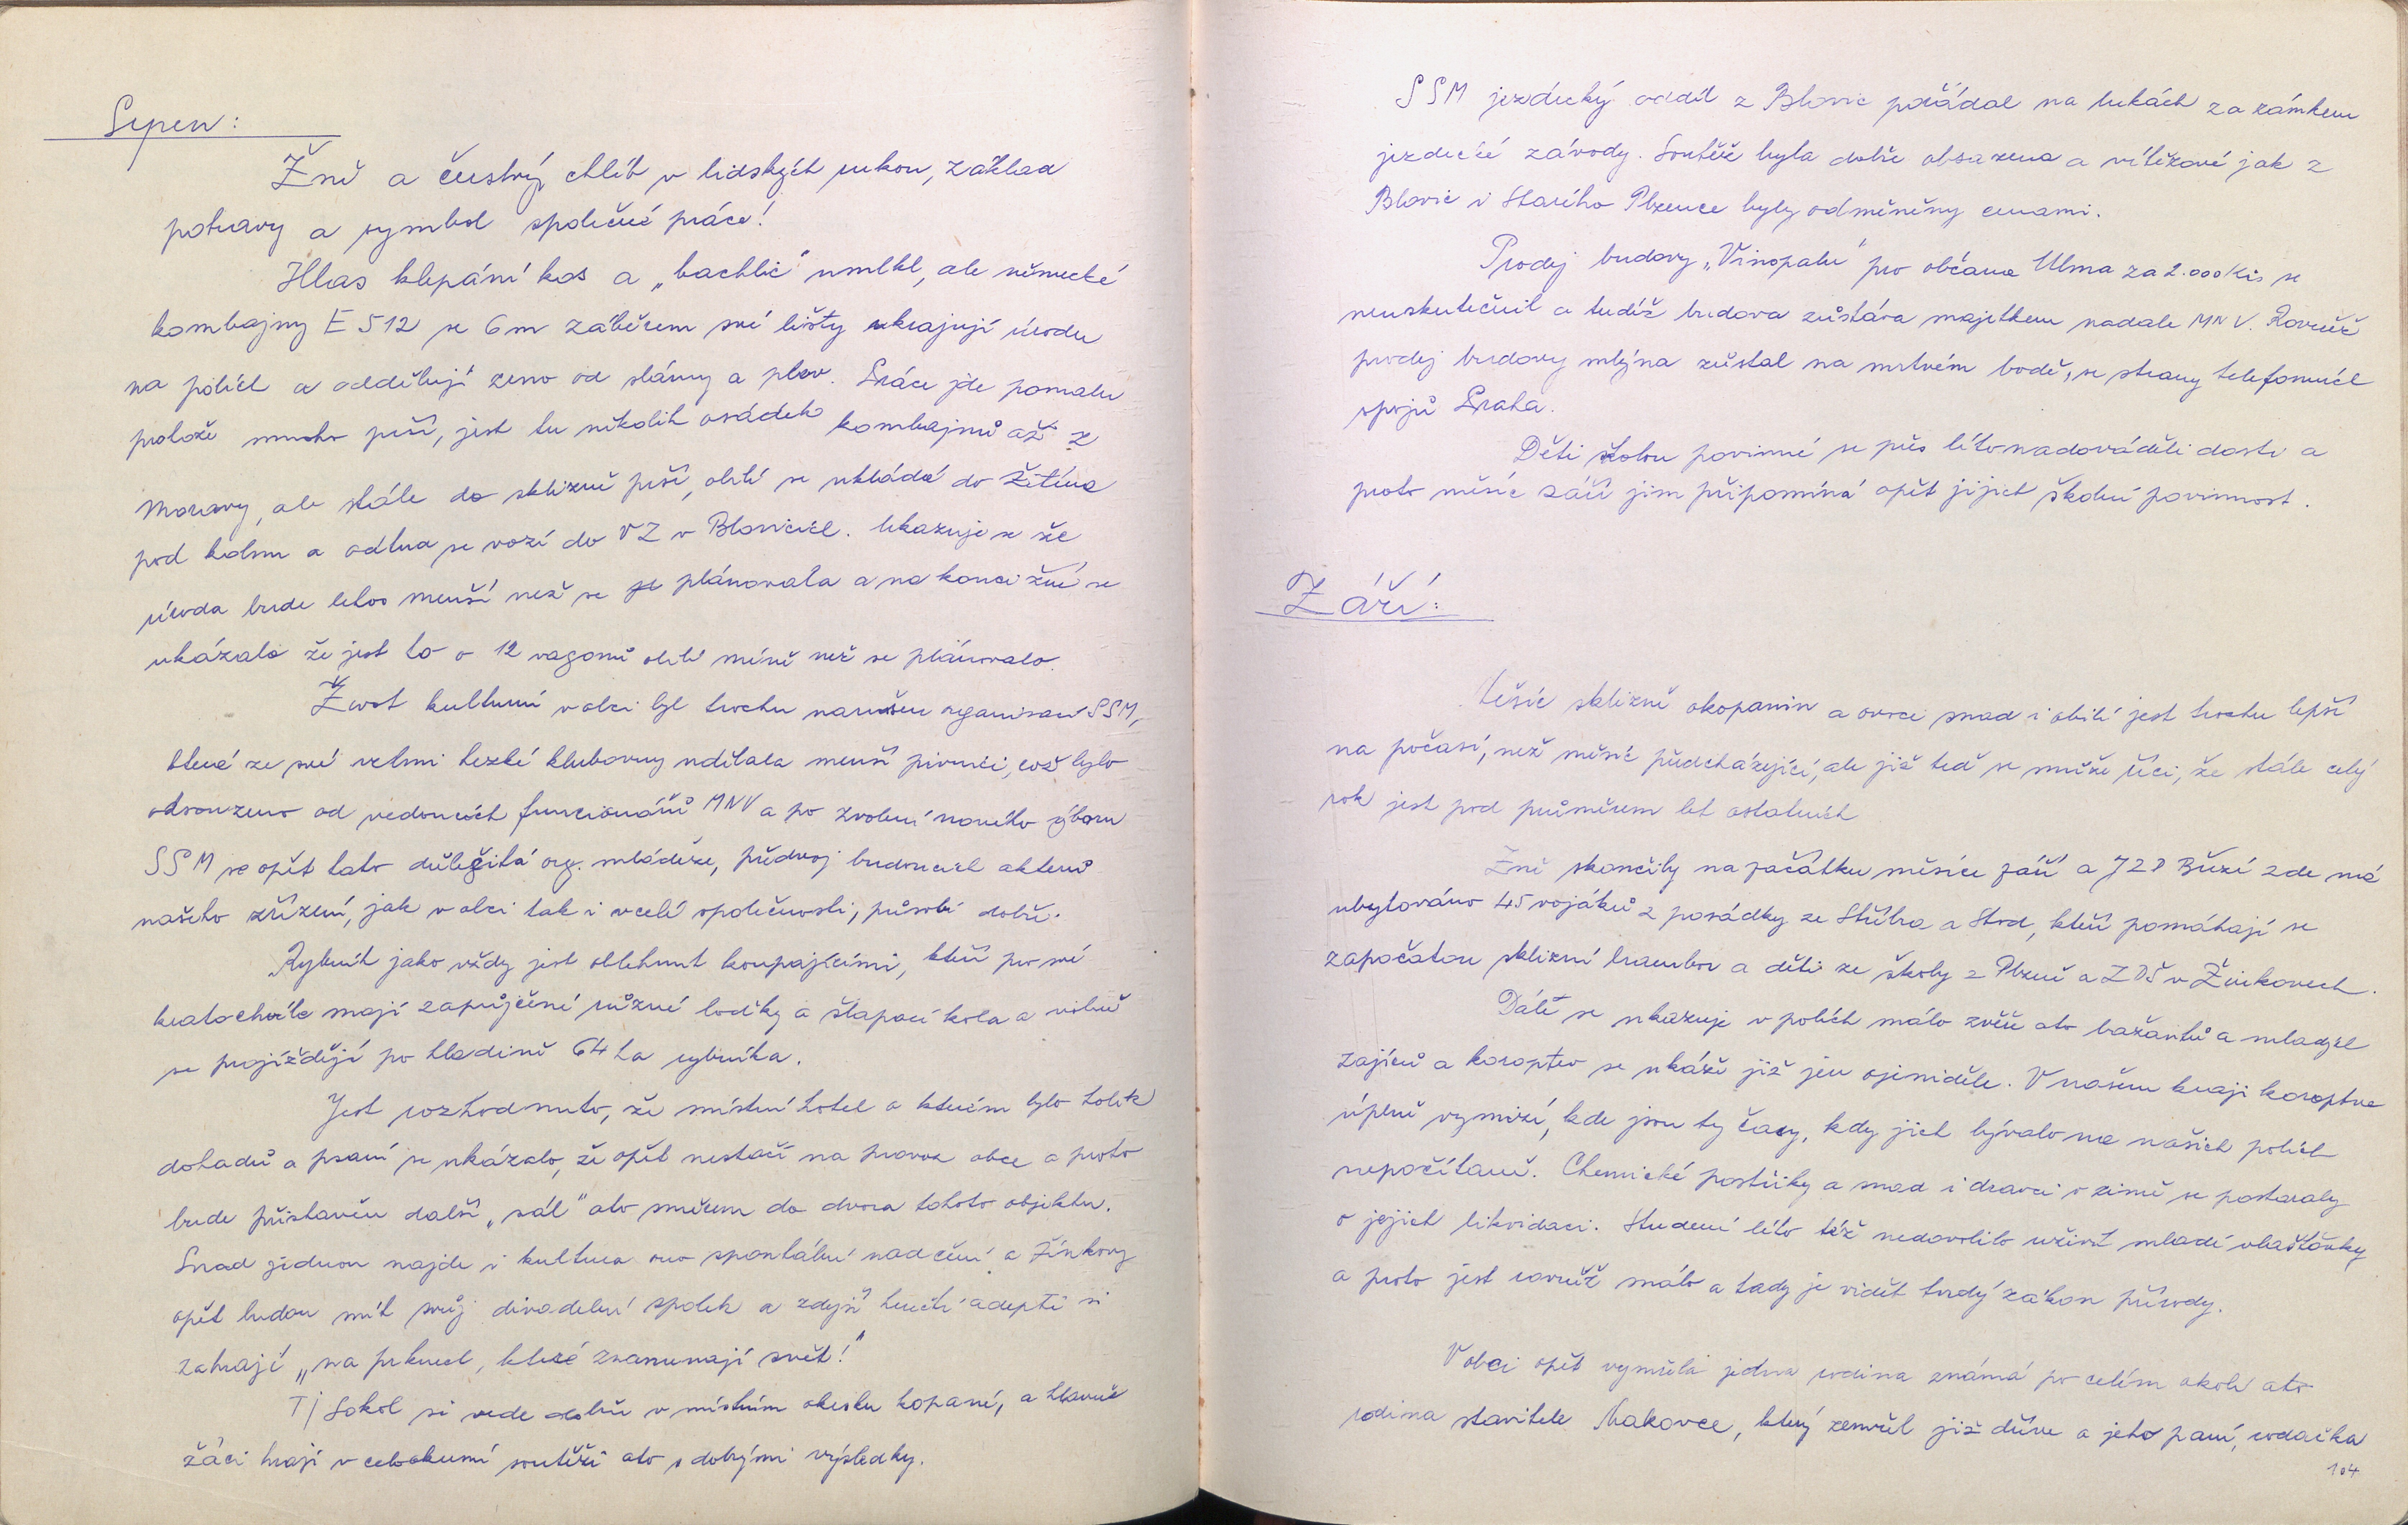 Srpen:
Žně a čerstvý chléb v lidských rukou, základ
potravy a symbol společné práce!
Hlas klepání kos a „bachlic" umlkl, ale německé
kombajny E 512 se 6 m záběrem své lišty ukrajují úrodu
na polích a oddělují zrno od slámy a plev. Práce jde pomalu
protože mnoho prší, jest tu několik osádek kombajnů až z
Moravy, ale stále do sklizně prší, obilí se ukládá do Žitína
pod kolnu a odtud se vozí do VZ v Blovicích. Ukazuje se že
úroda bude letos menší než se plánovala a na konci žní se
ukázalo že jest to o 12 vagonů obilí méně než se plánovalo.
Život kulturní v obci byl trochu narušen organisací SSM,
která ze své velmi hezké klubovny udělala menší pivnici, což bylo
odsouzeno od vedoucích funcionářů MNV a po zvolení nového výboru
SSM se opět tato důležitá org. mládeže, předvoj budoucích akterů
našeho zřízení, jak v obci tak i v celé společnosti, působí dobře.
Rybník jako vždy jest oblehnut koupajícími, kteří pro své
kratochvíle mají zapůjčené různé loďky a šlapací kola a volně
se projíždějí po hladině 64 ha rybníka.
Jest rozhodnuto, že místní hotel o kterém bylo tolik
dohadů a psaní se ukázalo, že opět nestačí na provoz obce a proto
bude přistavěn další „sál" ato směrem do dvora tohoto objektu.
Snad jednou najde i kultura ono spontální nadšení a Žinkovy
opět budou mít svůj divadelní spolek a zdejší herečtí adepti si
zahrají „na prknech, které znamenají svět!"
Tj Sokol si vede dobře v místním okesku kopané, a hlavně
žáci hrají v celookresní soutěži ato s dobrými výsledky.
SSM jezdecký oddíl z Blovic pořádal na lukách za zámkem
jezdecké závody. Soutěž byla dobře obsazena a vítězové jak z
Blovic i Starého Plzence byly odměněny cenami.
Prodej budovy „Vinopalu" pro občana Ulma za 2.000 Kčs se
neuskutečnil a tudíž budova zůstáva majetkem nadále MNV. Rovněž
prodej budovy mlýna zůstal na mrtvém bodě, se strany telefonních
spojů Praha.
Děti školou povinné se přes léto nadováděli dosti a
proto měsíc září jim připomíná opět jijich školní povinnost.
Září:
Měsíc sklizně okopanin a ovoci snad i obilí jest trochu lepší
na počasí, než měsíc předcházející, ale již teď se může říci, že stále celý
rok jest pod průměrem let ostatních
Žně skončily na začátku měsíce září a JZD Březí zde má
ubytováno 45 vojáků z posádky ze Stříbra a Stod, kteří pomáhají se
započatou sklizní brambor a děti ze školy z Plzně a ZDŠ v Žinkovech.
Dále se ukazuje v polích málo zvěře ato bažantů a mladých
zajíců a koroptev se ukáže již jen ojeniděle. V našem kraji koroptve
úplně vymizí, kde jsou ty časy, kdy jich bývalo na našich polích
nepočítaně. Chemické postřiky a snad i dravci v zimě se postaraly
o jejich likvidaci. Studené léto též nedovolilo uživit mladé vlaštovky
a proto jest rovněž málo a tady je vidět tvrdý zákon přírody.
V obci opět vymřela jedna rodina známá po celém okolí ato
rodina stavitele Makovce, který zemřel již dříve a jeho paní, rodačka
104